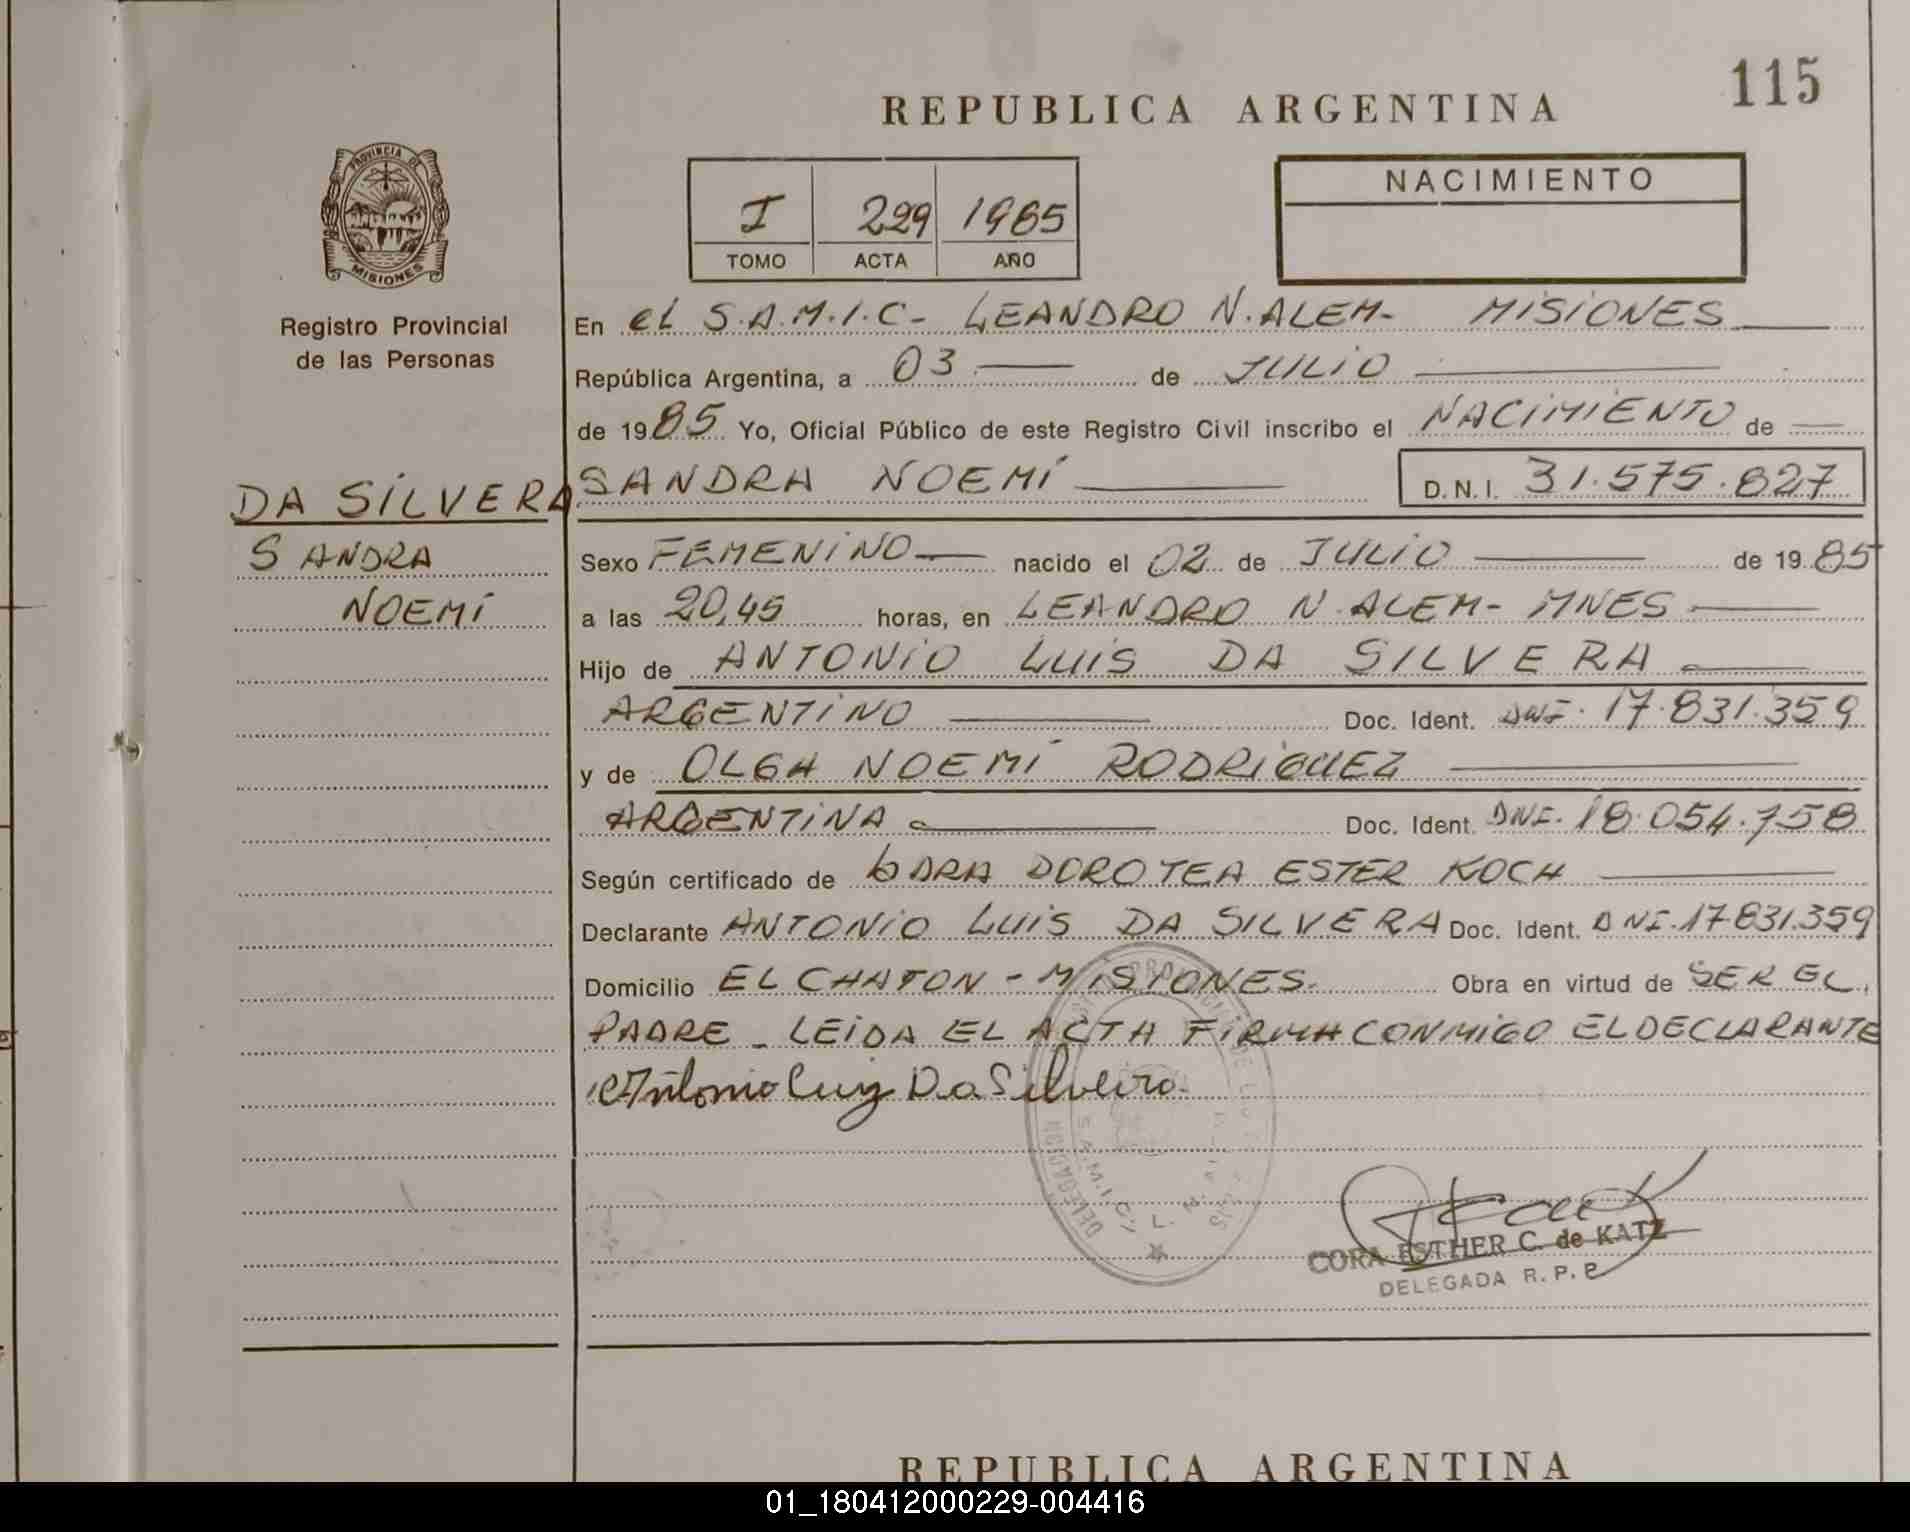 115
REPUBLICA ARGENTINA
NACIMIENTO
I 229 1985
TOMO ACTA AÑO
PROVINCIA DE
MISIONES
Registro Provincial
de las Personas
En el S.A.M.I.C- LEANDRO N.ALEM- MISIONES
República Argentina, a 03 de JULIO
de 1985 Yo, Oficial Público de este Registro Civil inscribo el NACIMIENTO de
DA SILVERA SANDRA NOEMÍ D.N.I. 31.575.827
SANDRA
NOEMÍ
Sexo FEMENINO nacido el 02 de JULIO de 1985
a las 20,45 horas, en LEANDRO N.ALEM- MNES
Hijo de ANTONIO LUIS DA SILVERA
ARGENTINO Doc. Ident. DNI. 17.831.359
y de OLGA NOEMÍ RODRIGUEZ
ARGENTINA Doc. Ident. DNI. 18.054.758
Según certificado de DRA DOROTEA ESTER KOCH
Declarante ANTONIO LUIS DA SILVERA Doc. Ident. DNI.17831.359
Domicilio EL CHATON - MISIONES. Obra en virtud de SER EL
PADRE - LEIDA EL ACTA FIRMA CONMIGO EL DECLARANTE
Antonio Luiz Da Silveiro
DELEGACION
S.A.M.I.C. L. N.
CORA ESTHER C. de KATZ
DELEGADA R. P. P
REPUBLICA ARGENTINA
01_180412000229-004416